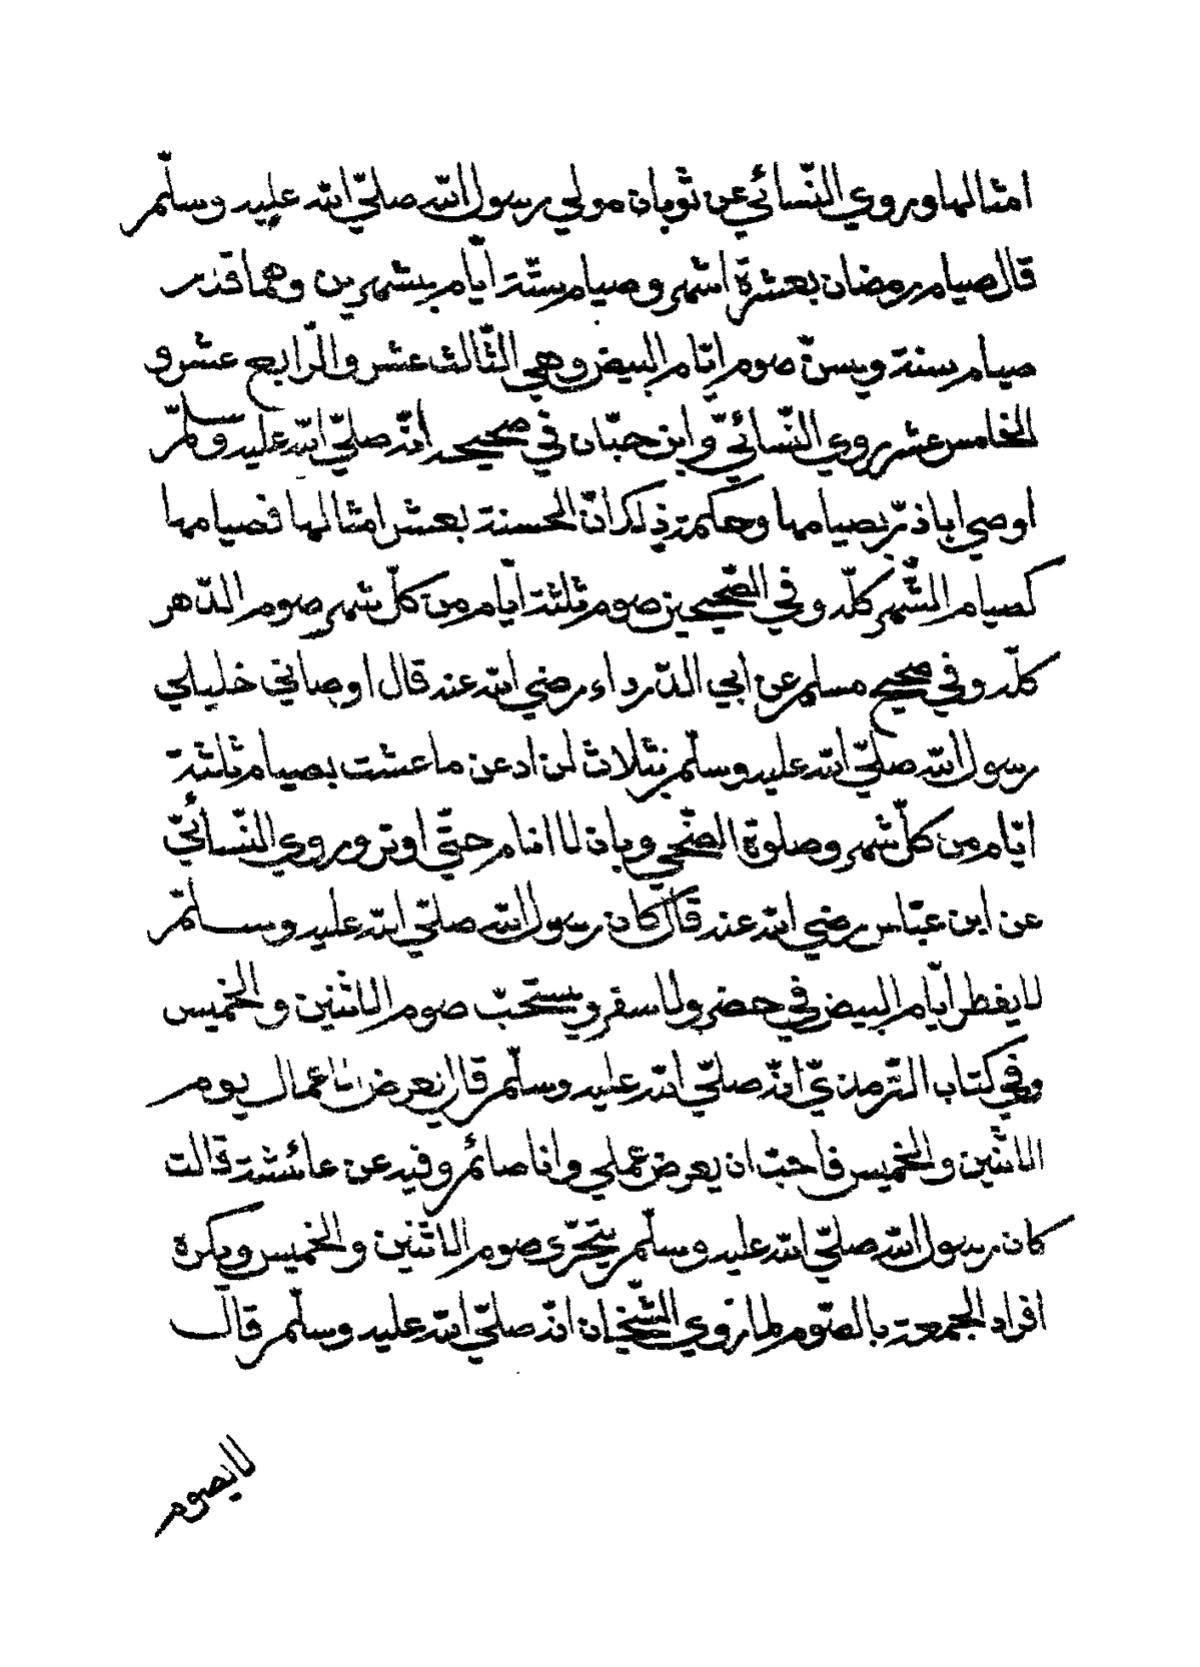 امثالها وروي النّسائي عن ثوبان مولي رسول الله صلّي الله عليه وسلّم
قال صيام رمضان بعشرة اشهر وصيام ستّة ايّام بشهرين وهما قدر
صيام سنة ويسنّ صوم ايّام البيض وهي الثّالث عشر والرّابع عشر و
الخامس عشر روي النّسائيّ وابن حبّان في صحيحه انّه صلّي الله عليه وسلّم
اوصي اباذرّ بصيامها وحكمة ذلك انّ الحسنة بعشر امثالها فصيامها
كصيام الشّهر كلّه وفي الصّحيحين صوم ثلثة ايّام من كلّ شهر صوم الدّهر
كلّه وفي صحيح مسلم عن ابي الدّرداء رضي الله عنه قال اوصاني خليلي
رسول الله صلّي الله عليه وسلّم بثلاث لن ادعن ما عشت بصيام ثلثة
ايّام من كلّ شهر وصلوة الضّحي وبان لا انام حتّي اوتر وروي النّسائيّ
عن ابن عبّاس رضي الله عنه قال كان رسول الله صلّي الله عليه وسلّم
لا يفطر ايّام البيض في حضر ولا سفر ويستحبّ صوم الاثنين والخميس
وفي كتاب التّرمذيّ انّه صلّي الله عليه وسلّم قال يعرض الاعمال يوم
الاثنين والخميس فاحبّ ان يعرض عملي وانا صائم وفيه عن عائشة قالت
كان رسول الله صلّي الله عليه وسلّم يتحرّي صوم الاثنين والخميس ويكره
افراد الجمعة بالصّوم لما روي الشّيخان انّه صلّي الله عليه وسلّم قال
لا يصوم